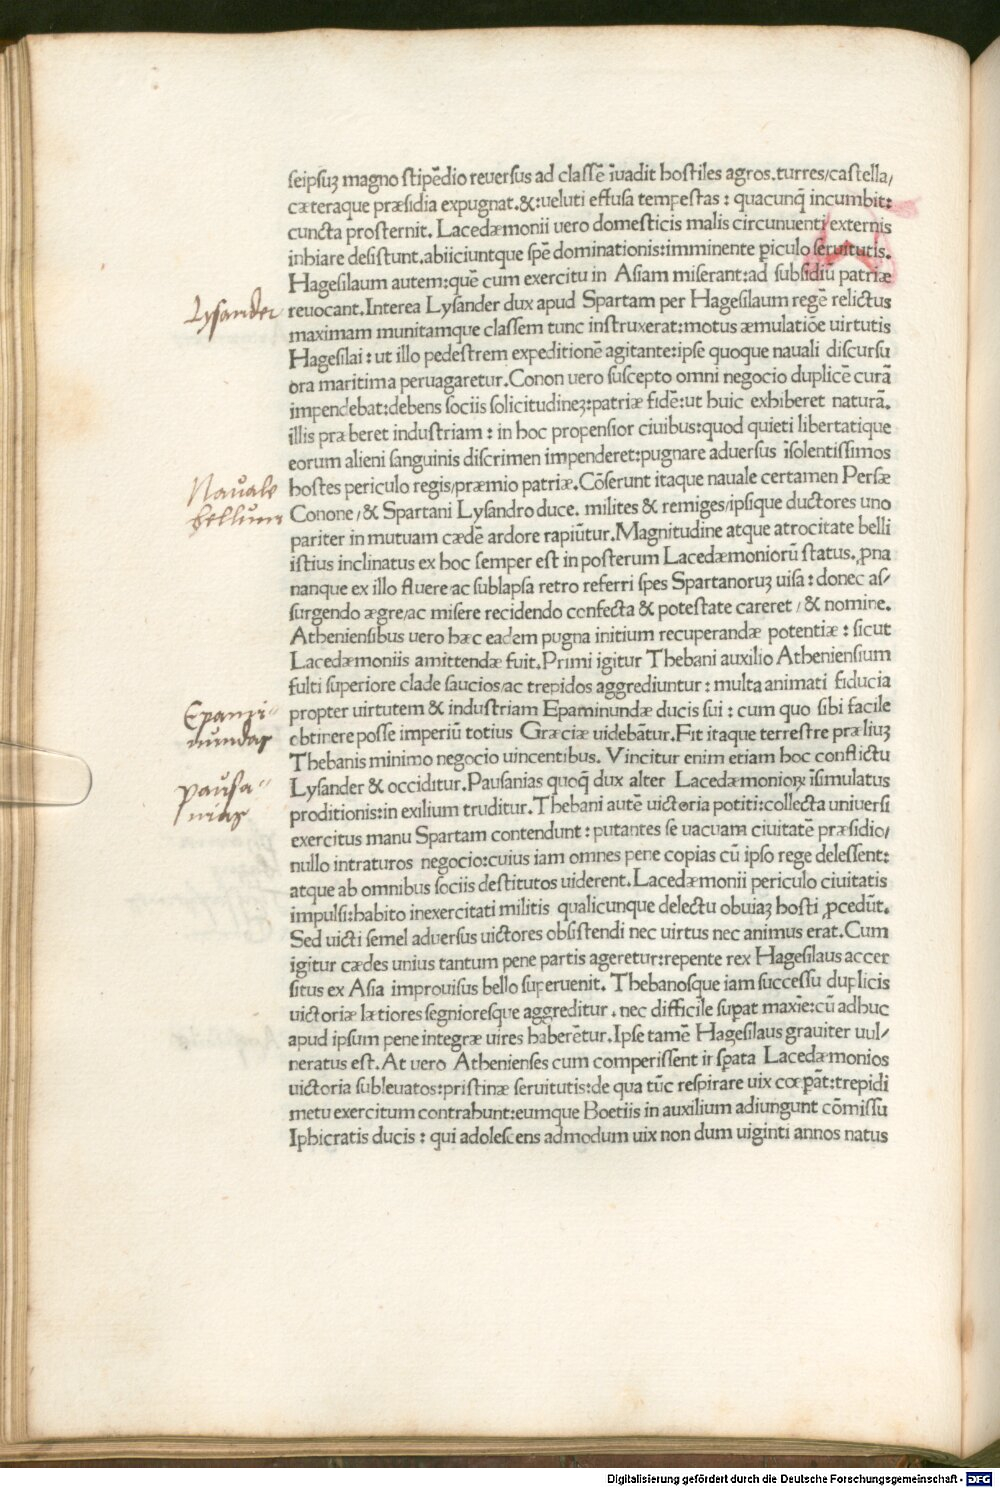 seipsuʒ magno stipēdio reuersus ad classē īuadit hostiles agros.turres/castella/
cæteraque præsidia expugnat.&:ueluti effusa tempestas : quacunq̄ incumbit:
cuncta prosternit. Lacedæmonii uero domesticis malis circunuenti externis
inhiare desistunt.abiiciuntque spē dominationis:imminente ꝑiculo seruitutis.
Hagesilaum autem:quē cum exercitu in Asiam miserant:ad subsidiū patriæ
Lysander
reuocant.Interea Lysander dux apud Spartam per Hagesilaum regē relictus
maximam munitamque classem tunc instruxerat:motus æmulatiōe uirtutis
Hagesilai : ut illo pedestrem expeditionē agitante:ipse quoque nauali discursu
ora maritima peruagaretur.Conon uero suscepto omni negocio duplicē curā
impendebat:debens sociis solicitudineʒ:patriæ fidē:ut huic exhiberet naturā.
illis præberet industriam : in hoc propensior ciuibus:quod quieti libertatique
eorum alieni sanguinis discrimen impenderet:pugnare aduersus īsolentissimos
Nauale
bellum
hostes periculo regis/præmio patriæ.Cōserunt itaque nauale certamen Persæ
Conone/& Spartani Lysandro duce. milites & remiges/ipsique ductores uno
pariter in mutuam cædē ardore rapiūtur.Magnitudine atque atrocitate belli
istius inclinatus ex hoc semper est in posterum Lacedæmoniorū status.ꝓna
nanque ex illo fluere ac sublapsa retro referri spes Spartanoruʒ uisa : donec as/
surgendo ægre/ac misere recidendo confecta & potestate careret / & nomine.
Atheniensibus uero hæc eadem pugna initium recuperandæ potentiæ : sicut
Lacedæmoniis amittendæ fuit.Primi igitur Thebani auxilio Atheniensium
fulti superiore clade saucios/ac trepidos aggrediuntur : multa animati fiducia
Epami-
nundas
propter uirtutem & industriam Epaminundæ ducis sui : cum quo sibi facile
obtinere posse imperiū totius Græciæ uidebātur.Fit itaque terrestre præliuʒ
Thebanis minimo negocio uincentibus. Vincitur enim etiam hoc conflictu
pausa-
nias
Lysander & occiditur.Pausanias quoq̄ dux alter Lacedæmonioꝝ īsimulatus
proditionis:in exilium truditur.Thebani autē uictoria potiti:collecta uniuersi
exercitus manu Spartam contendunt : putantes se uacuam ciuitatē præsidio/
nullo intraturos negocio:cuius iam omnes pene copias cū ipso rege delessent:
atque ab omnibus sociis destitutos uiderent.Lacedæmonii periculo ciuitatis
impulsi:habito inexercitati militis qualicunque delectu obuiaʒ hosti ꝓcedūt.
Sed uicti semel aduersus uictores obsistendi nec uirtus nec animus erat.Cum
igitur cædes unius tantum pene partis ageretur:repente rex Hagesilaus accer
situs ex Asia improuisus bello superuenit. Thebanosque iam successu duplicis
uictoriæ lætiores segnioresque aggreditur . nec difficile suꝑat maxīe:cū adhuc
apud ipsum pene integræ uires haberētur.Ipse tamē Hagesilaus grauiter uul/
neratus est.At uero Athenienses cum comperissent īsꝑata Lacedæmonios
uictoria subleuatos:pristinæ seruitutis:de qua tūc respirare uix cœpāt:trepidi
metu exercitum contrahunt:eumque Boetiis in auxilium adiungunt cōmissu
Iphicratis ducis : qui adolescens admodum uix non dum uiginti annos natus
Digitalisierung gefördert durch die Deutsche Forschungsgemeinschaft - DFG